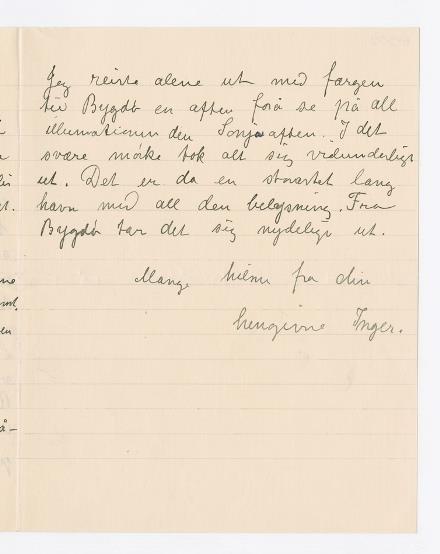 Jeg reiste alene ut med færgen
til Bygdø en aften forå se på all
illumationen den Sonjaaften. I det
svære mørke tok alt sig vidunderligt
ut. Det er da en storartet lang
havn med all den belysning. Fra
Bygdø tar det sig nydelig ut.
Mange hilsner fra din
hengivne Inger.